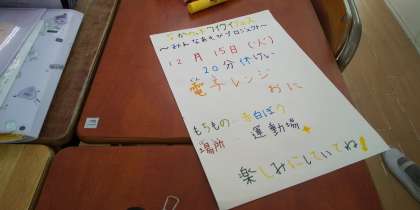 〜みんなあそびプロジェクト〜
12月15日(火)
20分休けい
電子レンジ
おに
もちもの 赤白ぼう
場所 運動場
楽しみにしていてね!